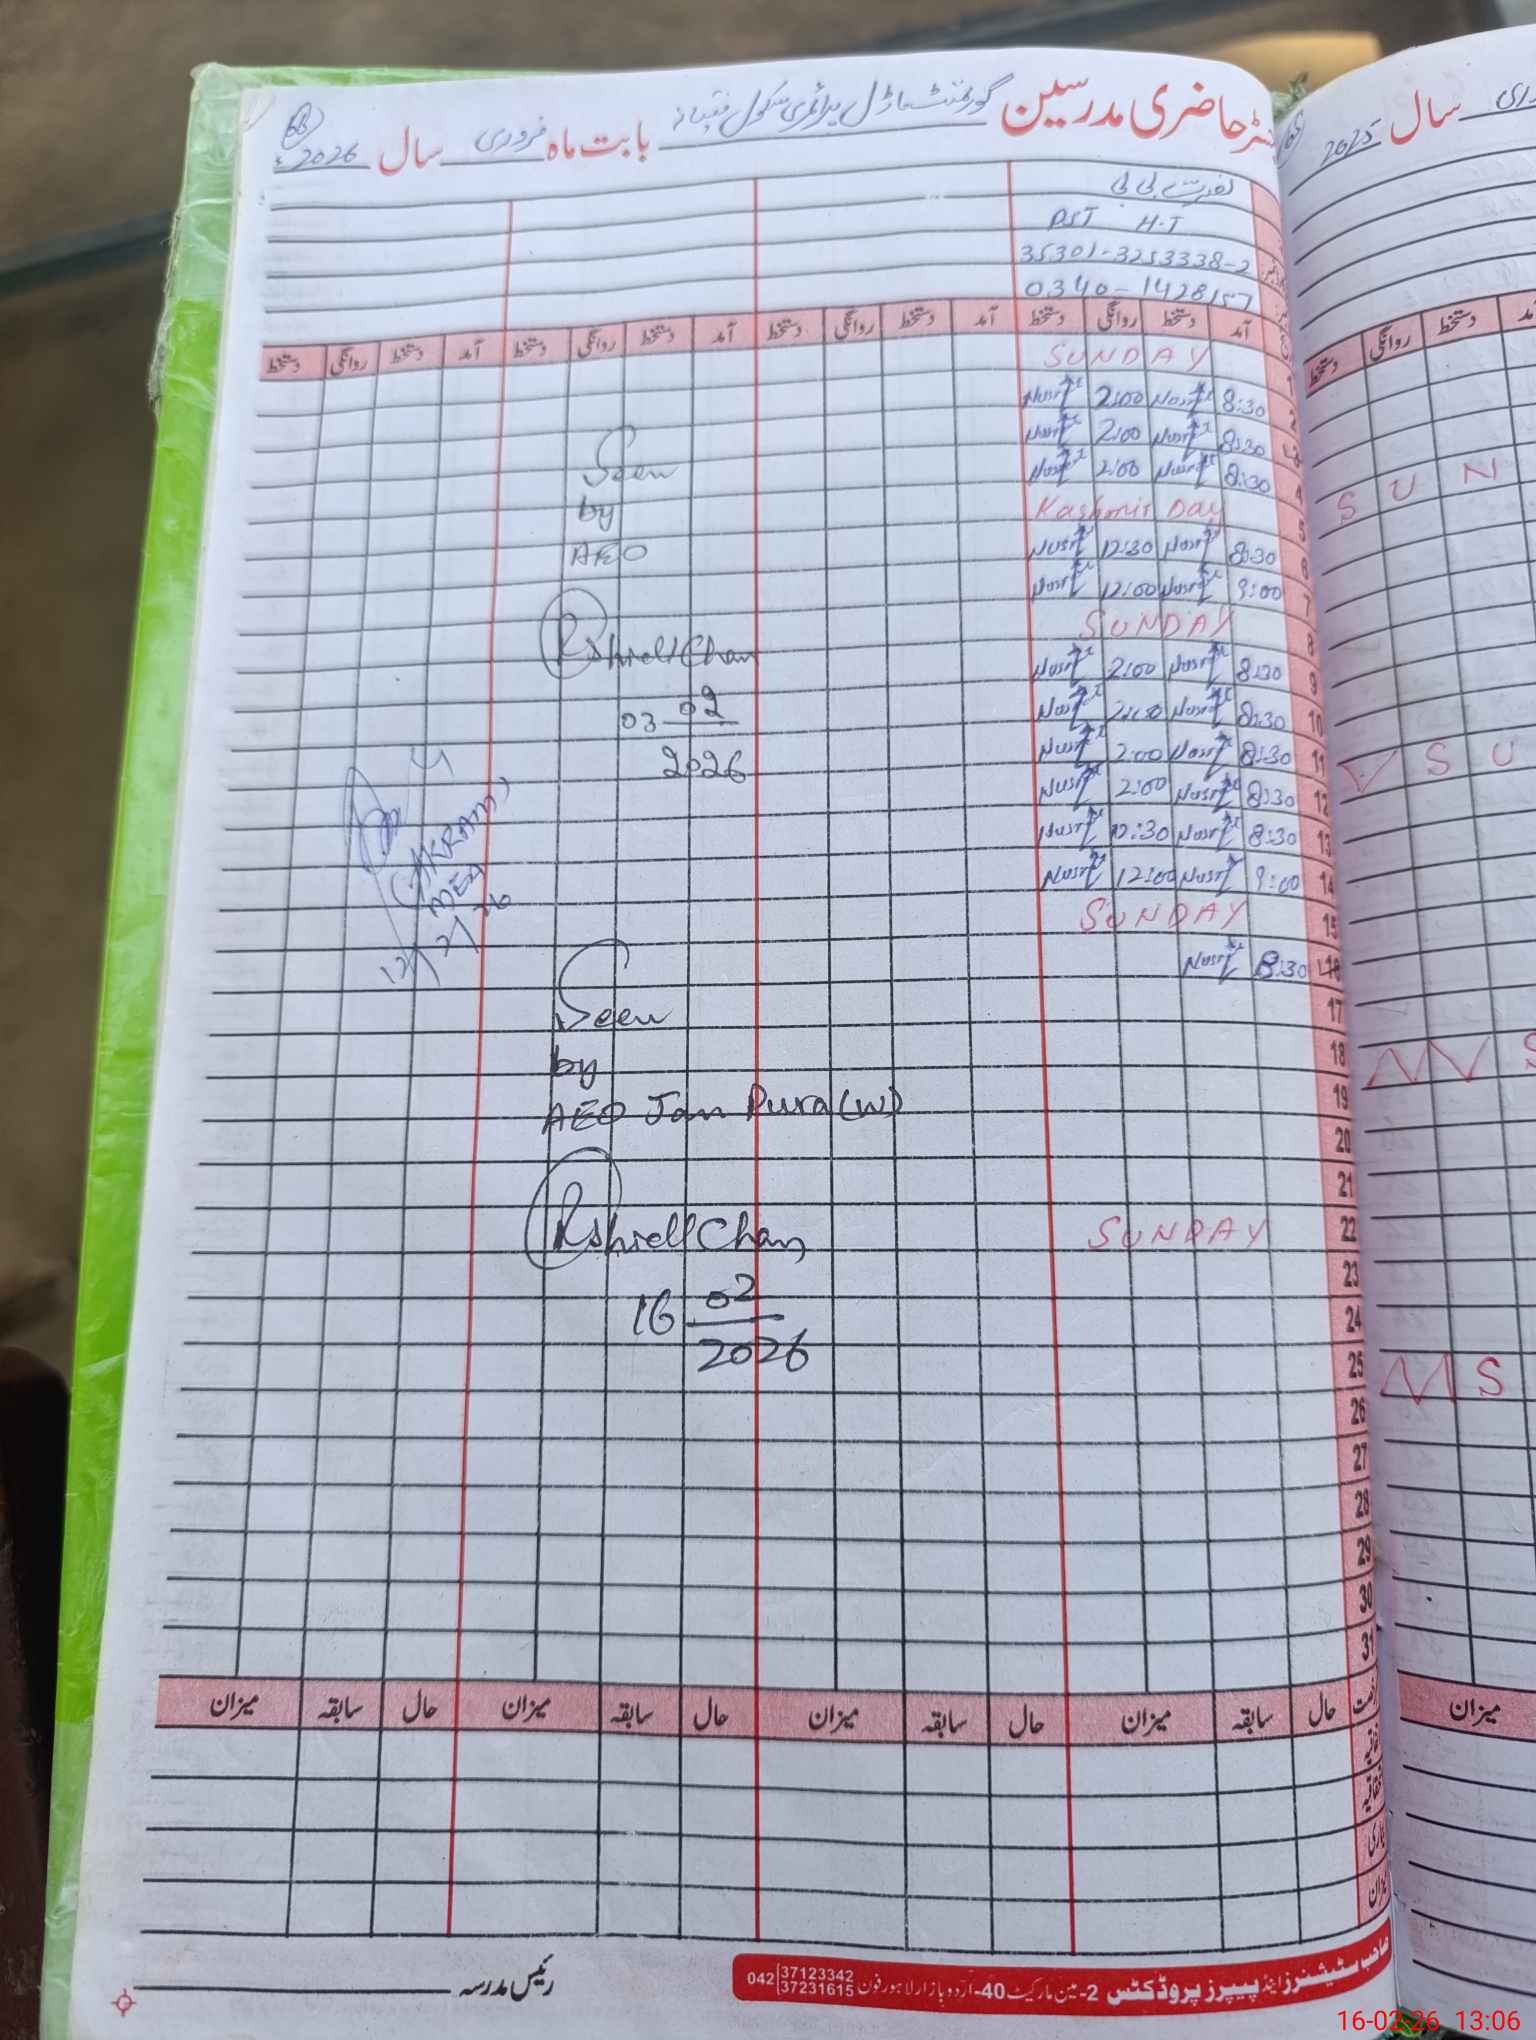 رجسٹر حاضری مدرسین گورنمنٹ ماڈل پرائمری سکول بابت ماہ فروری سال 2026ء
نصرت بی بی
PST H.T
35301-3253338-2
0340-1428157
آمد دستخط روانگی دستخط آمد دستخط روانگی دستخط آمد دستخط روانگی دستخط آمد دستخط روانگی دستخط
1 SUNDAY
2 8:30 Nusrat 2:00 Nusrat
3 8:30 Nusrat 2:00 Nusrat
4 8:30 Nusrat 2:00 Nusrat
5 Kashmir Day
6 8:30 Nusrat 12:30 Nusrat
7 9:00 Nusrat 12:00 Nusrat
8 SUNDAY
9 8:30 Nusrat 2:00 Nusrat
10 8:30 Nusrat 2:00 Nusrat
11 8:30 Nusrat 2:00 Nusrat
12 8:30 Nusrat 2:00 Nusrat
13 8:30 Nusrat 12:30 Nusrat
14 9:00 Nusrat 12:00 Nusrat
15 SUNDAY
16 8:30 Nusrat
17
18
19
20
21
22 SUNDAY
23
24
25
26
27
28
29
30
31
Seen
by
AEO
03 02
2026
(AKRAM)
MEA
12/2/26
Seen
by
AEO Jan Pura (W)
16 02
2026
حال سابقہ میزان حال سابقہ میزان حال سابقہ میزان حال سابقہ میزان
میزان
رئیس مدرسہ
صاحب سٹیشنرز اینڈ پیپرز پروڈکٹس 2-مین مارکیٹ 40-اردو بازار لاہور فون 042 37123342
37231615
سال 2025
دستخط روانگی دستخط
S U N
S U
S
S
میزان
16-02-26 13:06